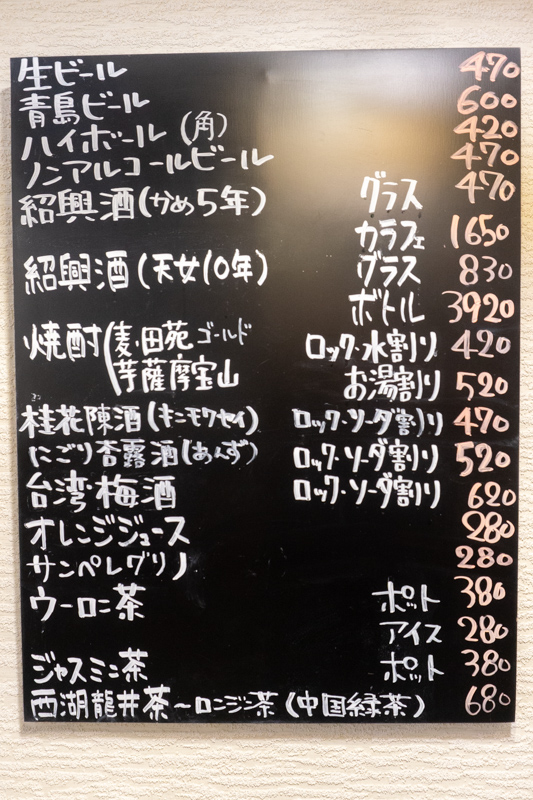 生ビール 470
青島ビール 600
ハイボール (角) 420
ノンアルコールビール 470
紹興酒(かめ5年) グラス 470
カラフェ 1650
紹興酒(天女10年) グラス 830
ボトル 3920
焼酎(麦・田苑 ゴールド ロック・水割り 420
芋薩摩宝山 お湯割り 520
桂花陳酒(キンモクセイ) ロック・ソーダ割り 470
にごり杏露酒(あんず) ロック・ソーダ割り 520
台湾梅酒 ロック・ソーダ割り 620
オレンジジュース 280
サンペレグリノ 280
ウーロン茶 ポット 380
アイス 280
ジャスミン茶 ポット 380
西湖龍井茶~ロンジン茶(中国緑茶) 680